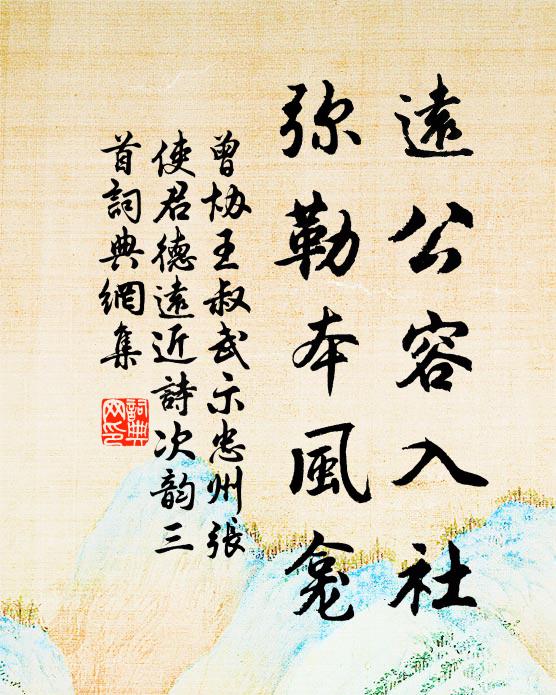 遠公容入社
弥勒夲風龛
曾协王叔武示忠州張
使君德遠近詩次韵三
首詞典網集
詞典
网印